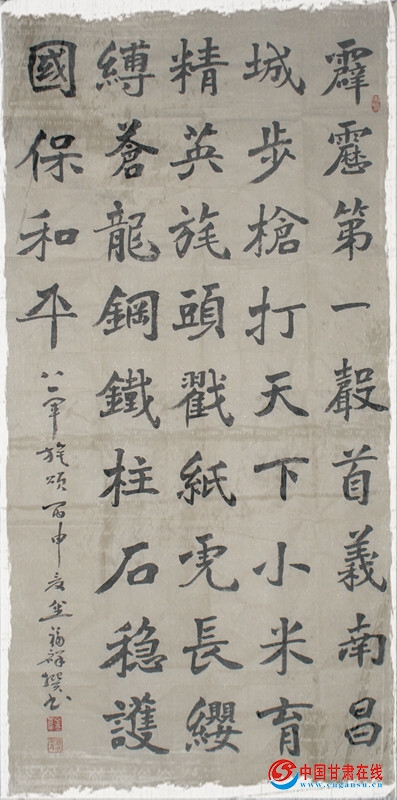 霹靂第一聲首義南昌
城步槍打天下小米育
精英旄頭戳紙虎長纓
縛蒼龍鋼鐵柱石稳護
國保和平 八一軍旄頌丙申夏福群撰书
中国甘肃在线
www.cngansu.cn